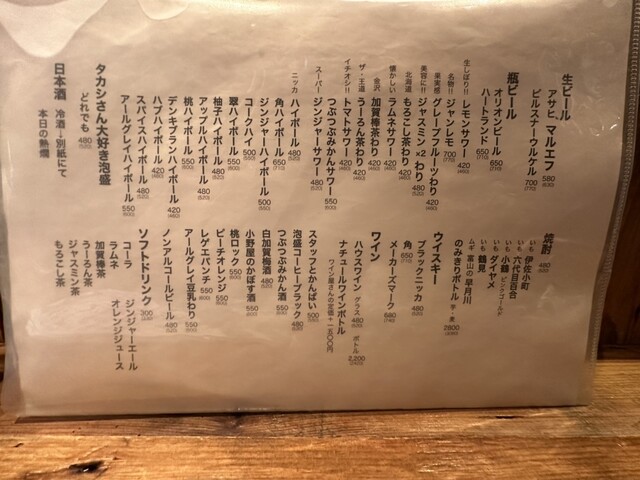 生ビール
アサヒ マルエフ 580
ピルスナーウルケル 700 (770)
瓶ビール
オリオンビール 650 (710)
ハートランド 650 (710)
生しぼり!! レモンサワー 420 (460)
名物!! ジャンレモ 700 (770)
果実感 グレープフルーツわり 420 (460)
美容に!! ジャスミン×2 わり 480 (520)
北海道 もろこし茶わり 420 (460)
懐かしい ラムネサワー 420 (460)
金沢 加賀棒茶わり 420 (460)
ザ・王道 うーろん茶わり 420 (460)
イチオシ!! トマトサワー 420 (460)
つぶつぶみかんサワー 550 (600)
スーパー ジンジャーサワー 480 (520)
ニッカ ハイボール 480 (520)
角ハイボール 650 (710)
ジンジャーハイボール 500 (550)
コークハイ 500 (550)
翠ハイボール 550 (600)
柚子ハイボール 480 (520)
アップルハイボール 480 (520)
桃ハイボール 550 (600)
デンキブランハイボール 420 (460)
ハブハイボール 420 (460)
スパイスハイボール 480 (520)
アールグレイハイボール 550 (600)
タカシさん大好き泡盛
どれでも 480 (520)
日本酒 冷酒→別紙にて
本日の熱燗
焼酎 480 (520)
いも 伊佐小町
いも 六代目百合
いも 小鶴 ピンクゴールド
いも ダイヤメ
いも 鶴見
ムギ 富山の早月川
のみきりボトル 芋・麦 2800
ウイスキー
ブラックニッカ 480 (520)
角 650 (710)
メーカーズマーク 680 (740)
ワイン
ハウスワイン グラス 480 (520) ボトル 2,200 (2420)
ナチュールワインボトル
ワイン屋さんの定価+一五〇〇円
スタッフとかんぱい 500 (550)
泡盛コーヒーブラック 480 (520)
つぶつぶみかん酒 480 (520)
白加賀梅酒 480 (520)
小野屋のかぼす酒 550 (600)
桃ロック 500 (550)
ピーチオレンジ 550 (600)
レゲエパンチ 550 (600)
アールグレイ豆乳わり 550 (600)
ノンアルコールビール 480 (520)
ソフトドリンク 300 (330)
コーラ ジンジャーエール
ラムネ オレンジジュース
加賀棒茶
うーろん茶
ジャスミン茶
もろこし茶